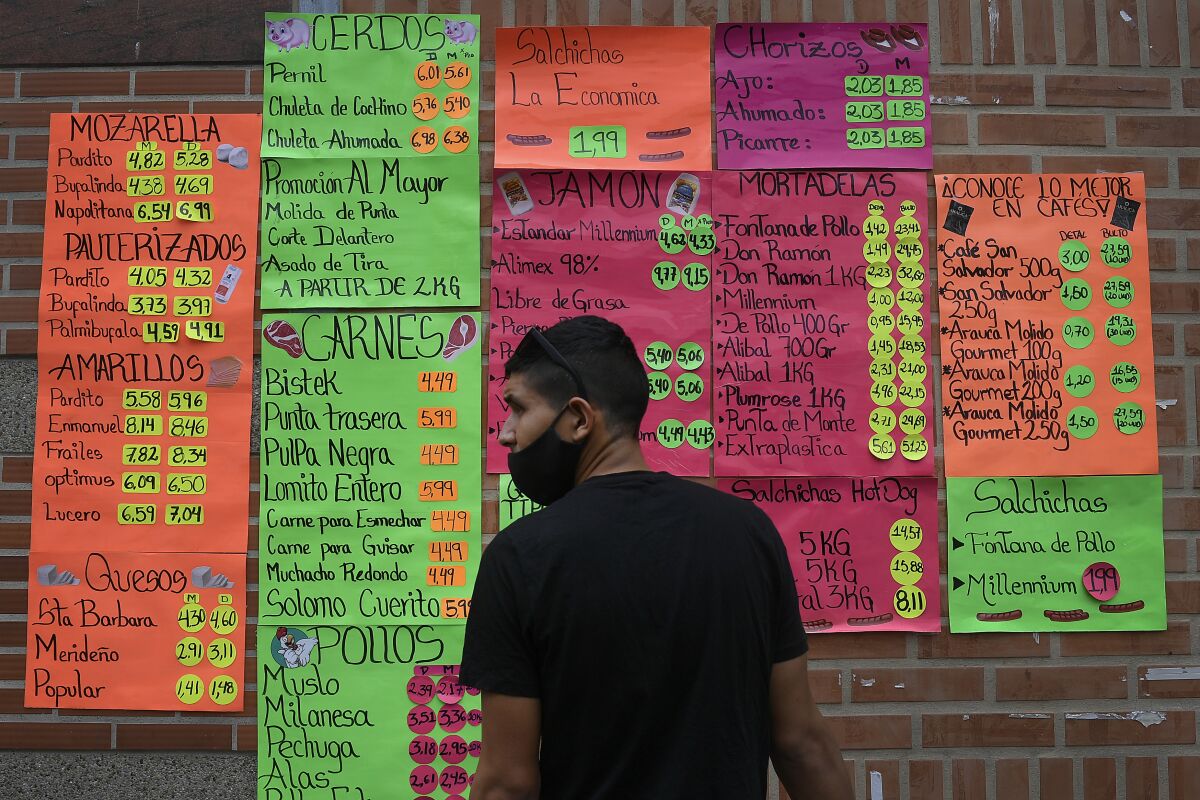 MOZARELLA
M D
Pardito 4,82 5,28
Bufalinda 4,38 4,69
Napolitana 6,54 6,99
PAUTERIZADOS
Pardito 4,05 4,32
Bufalinda 3,73 3,97
Palmibufala 4,59 4,91
AMARILLOS
Pardito 5,58 5,96
Enmanuel 8,14 8,46
Frailes 7,82 8,34
optimus 6,09 6,50
Lucero 6,59 7,04
Quesos
M D
Sta Barbara 4,30 4,60
Merideño 2,91 3,11
Popular 1,41 1,48
CERDOS
D M
Pernil 6,01 5,61
Chuleta de Cochino 5,76 5,40
Chuleta Ahumada 6,98 6,38
Promoción Al Mayor
Molida de Punta
Corte Delantero
Asado de Tira
A PARTIR DE 2 KG
CARNES
Bistek 4,49
Punta trasera 5,99
Pulpa Negra 4,49
Lomito Entero 5,99
Carne para Esmechar 4,49
Carne para Guisar 4,49
Muchacho Redondo 4,49
Solomo Cuerito 5,99
POLLOS
D M
Muslo 2,39 2,17
Milanesa 3,51 3,36
Pechuga 3,18 2,95
Alas 2,61 2,45
Salchichas
La Economica
1,99
JAMÓN
D M
Estandar Millennium 4,62 4,33
Alimex 98% 9,77 9,15
Libre de Grasa
5,40 5,06
5,40 5,06
4,49 4,43
CHorizos
D M
Ajo: 2,03 1,85
Ahumado: 2,03 1,85
Picante: 2,03 1,85
MORTADELAS
DETAL BULTO
Fontana de Pollo 1,42 23,41
Don Ramón 1,49 24,45
Don Ramón 1KG 2,23 32,60
Millennium 1,00 12,00
De Pollo 400Gr 0,95 15,45
Alibal 700Gr 1,45 18,53
Alibal 1KG 2,31 21,00
Plumrose 1KG 4,96 22,15
Punta de Monte 4,71 24,69
Extraplastica 5,61 51,23
Salchichas Hot Dog
14,57
5KG
5KG 15,88
3KG 8,11
¡CONOCE LO MEJOR
EN CAFÉS!
DETAL BULTO
Café San
Salvador 500g 3,00 27,59
San Salvador
250g 1,50 27,59
Arauca Molido
Gourmet 100g 0,70 19,31
Arauca Molido
Gourmet 200g 1,20 16,55
Arauca Molido
Gourmet 250g 1,50 27,59
Salchichas
Fontana de Pollo
Millennium 1,99